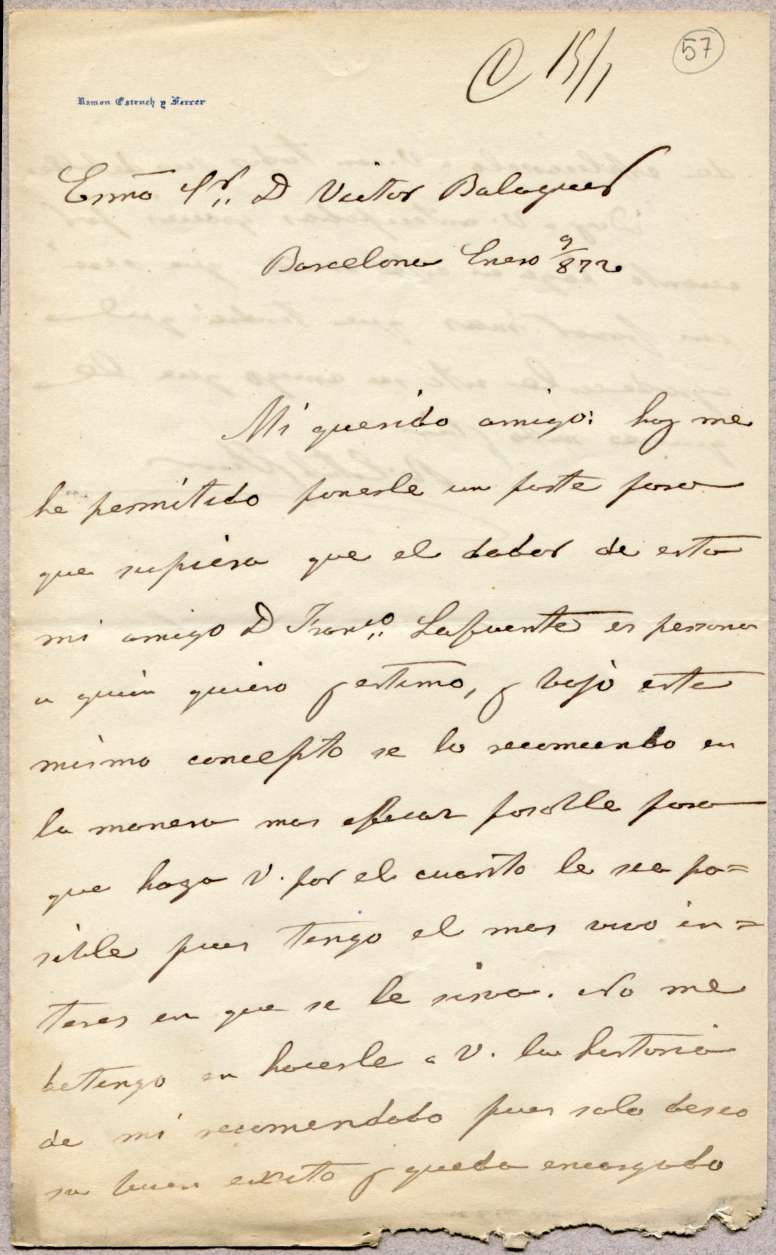 57
C 15/1
Ramon Estruch y Ferrer
Exmo Sr. D Victor Balaguer
Barcelona Enero 9/872
Mi querido amigo: hoy me
he permitido ponerle un parte para
que supiera que el dador de esta
mi amigo D Franco. Lafuente es persona
a quien quiero y estimo, y bajo este
mismo concepto se lo recomiendo en
la manera mas eficaz posible para
que haga V. por el cuanto le sea po=
sible pues tengo el mas vivo in=
teres en que se le sirva. No me
detengo en hacerle a V. la historia
de mi recomendado pues solo deseo
su buen exito y queda encargado